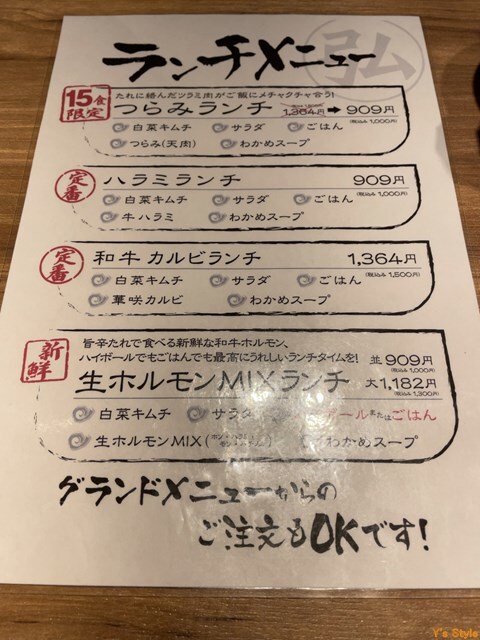 ランチメニュー
弘
15食限定
たれに絡んだツラミ肉がご飯にメチャクチャ合う!
つらみランチ 1,364円 ➡ 909円
(税込み 1,000円)
白菜キムチ サラダ ごはん
つらみ(天肉) わかめスープ
定番
ハラミランチ 909円
(税込み 1,000円)
白菜キムチ サラダ ごはん
牛ハラミ わかめスープ
定番
和牛カルビランチ 1,364円
(税込み 1,500円)
白菜キムチ サラダ ごはん
華咲カルビ わかめスープ
新鮮
旨辛たれで食べる新鮮な和牛ホルモン、
ハイボールでもごはんでも最高にうれしいランチタイムを!
並 909円
(税込み 1,000円)
生ホルモンMIXランチ 大 1,182円
(税込み 1,300円)
白菜キムチ サラダ ボールまたはごはん
生ホルモンMIX わかめスープ
グランドメニューからの
ご注文もOKです!
Y's Style